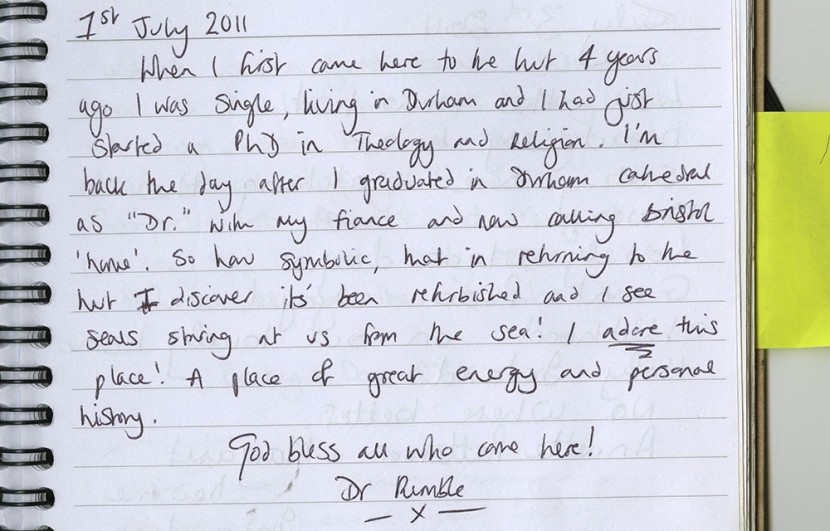 1st July 2011
When I first came here to the hut 4 years
ago I was single, living in Durham and I had just
started a PhD in Theology and Religion. I'm
back the day after I graduated in Durham cathedral
as "Dr." with my fiance and now calling Bristol
'home'. So how symbolic, that in returning to the
hut I discover its' been refurbished and I see
seals staring at us from the sea! I adore this
place! A place of great energy and personal
history.
God bless all who come here!
Dr Rumble
— x —